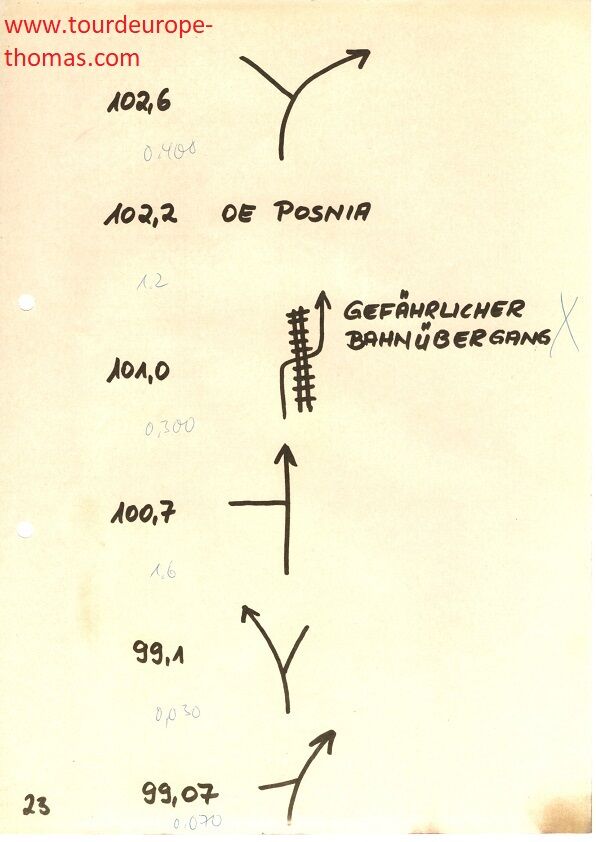 www.tourdeurope-
thomas.com
102,6
0.400
102,2 OE POSNIA
1.2
GEFÄHRLICHER
BAHNÜBERGANG X
101,0
0,300
100,7
1,6
99,1
0,030
99,07
23
0,070